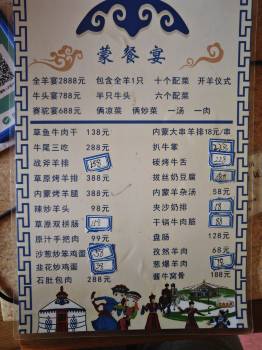 蒙餐宴
全羊宴2888元 包含全羊1只 十个配菜 开羊仪式
牛头宴788元 半只牛头 六个配菜
赛驼宴688元 俩凉菜 俩炒菜 一汤 一肉
草鱼牛肉干 138元
牛尾三吃 288元
战斧羊排
草原烤羊排 388元
内蒙烤羊腿 388元
辣炒羊头 98元
草原双拼肠
原汁手把肉 99元
沙葱炒笨鸡蛋
韭花炒鸡蛋
石肚包肉 288元
内蒙大串羊排18元/串
扒牛掌
碳烤牛舌
拔丝奶豆腐
内蒙羊杂汤 58元
夹沙奶排
干锅牛肉脏
血肠 128元
孜然羊肉 68元
葱爆羊肉
酱牛窝骨 188元